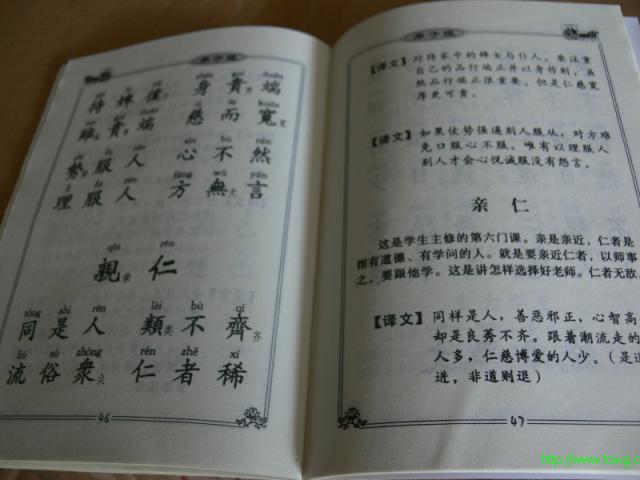 弟子規
待 婢 僕 身 貴 端
雖 貴 端 慈 而 寬
xīn bù rán
勢 服 人 心 不 然
lǐ fú rén fāng wú yán
理 服 人 方 無 言
qīn rén
親亲 仁
tóng shì rén lèi bù qí
同 是 人 類类 不 齊齐
liú sú zhòng rén zhě xī
流 俗 衆众 仁 者 稀
46
【译文】对待家中的婢女与仆人,要注重
自己的品行端正并以身作则,虽
然品行端正很重要,但是仁慈宽
厚更可贵。
【译文】如果仗势强逼别人服从,对方难
免口服心不服。唯有以理服人
别人才会心悦诚服没有怨言。
亲 仁
这是学生主修的第六门课。亲是亲近,仁者是
指有道德、有学问的人。就是要亲近仁者,以师事
之,要跟他学。这是讲怎样选择好老师。仁者无敌
【译文】同样是人,善恶邪正,心智高
却是良莠不齐。跟着潮流走的
人多,仁慈博爱的人少。(是道
进,非道则退)
47